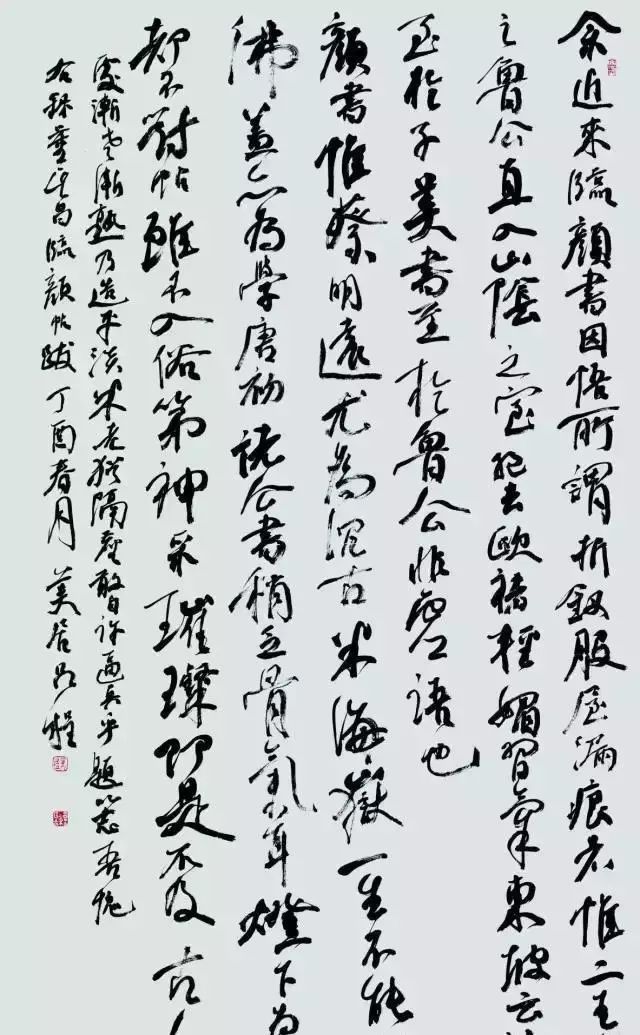 余近来临颜书因悟所谓折钗股屋漏痕者惟二王
之鲁公直入山阴之室绝去欧褚轻媚习气东坡云
至于子美书至于鲁公非虚语也
颜书惟蔡明远尤为沉古米海岳一生不能
佛盖亦为学唐初诸公书稍乏骨气耳灯下为
却不对帖虽不入俗第神采璀璨即是不及古人
渐老渐熟乃造平淡米老犹隔尘敢许逼真乎题以志吾愧
右录董其昌临颜帖跋丁酉春月美居